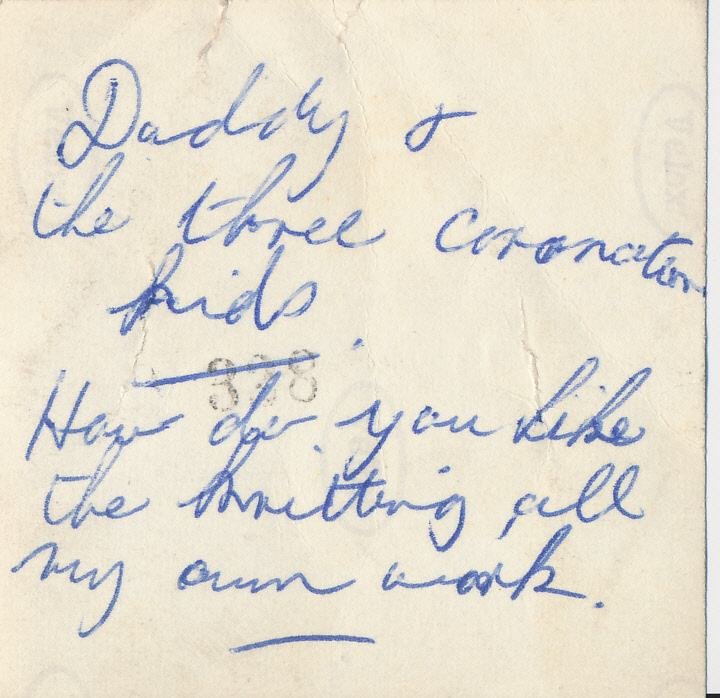 Daddy &
the three coronation
kids.
338
How do you like
the knitting all
my own work.